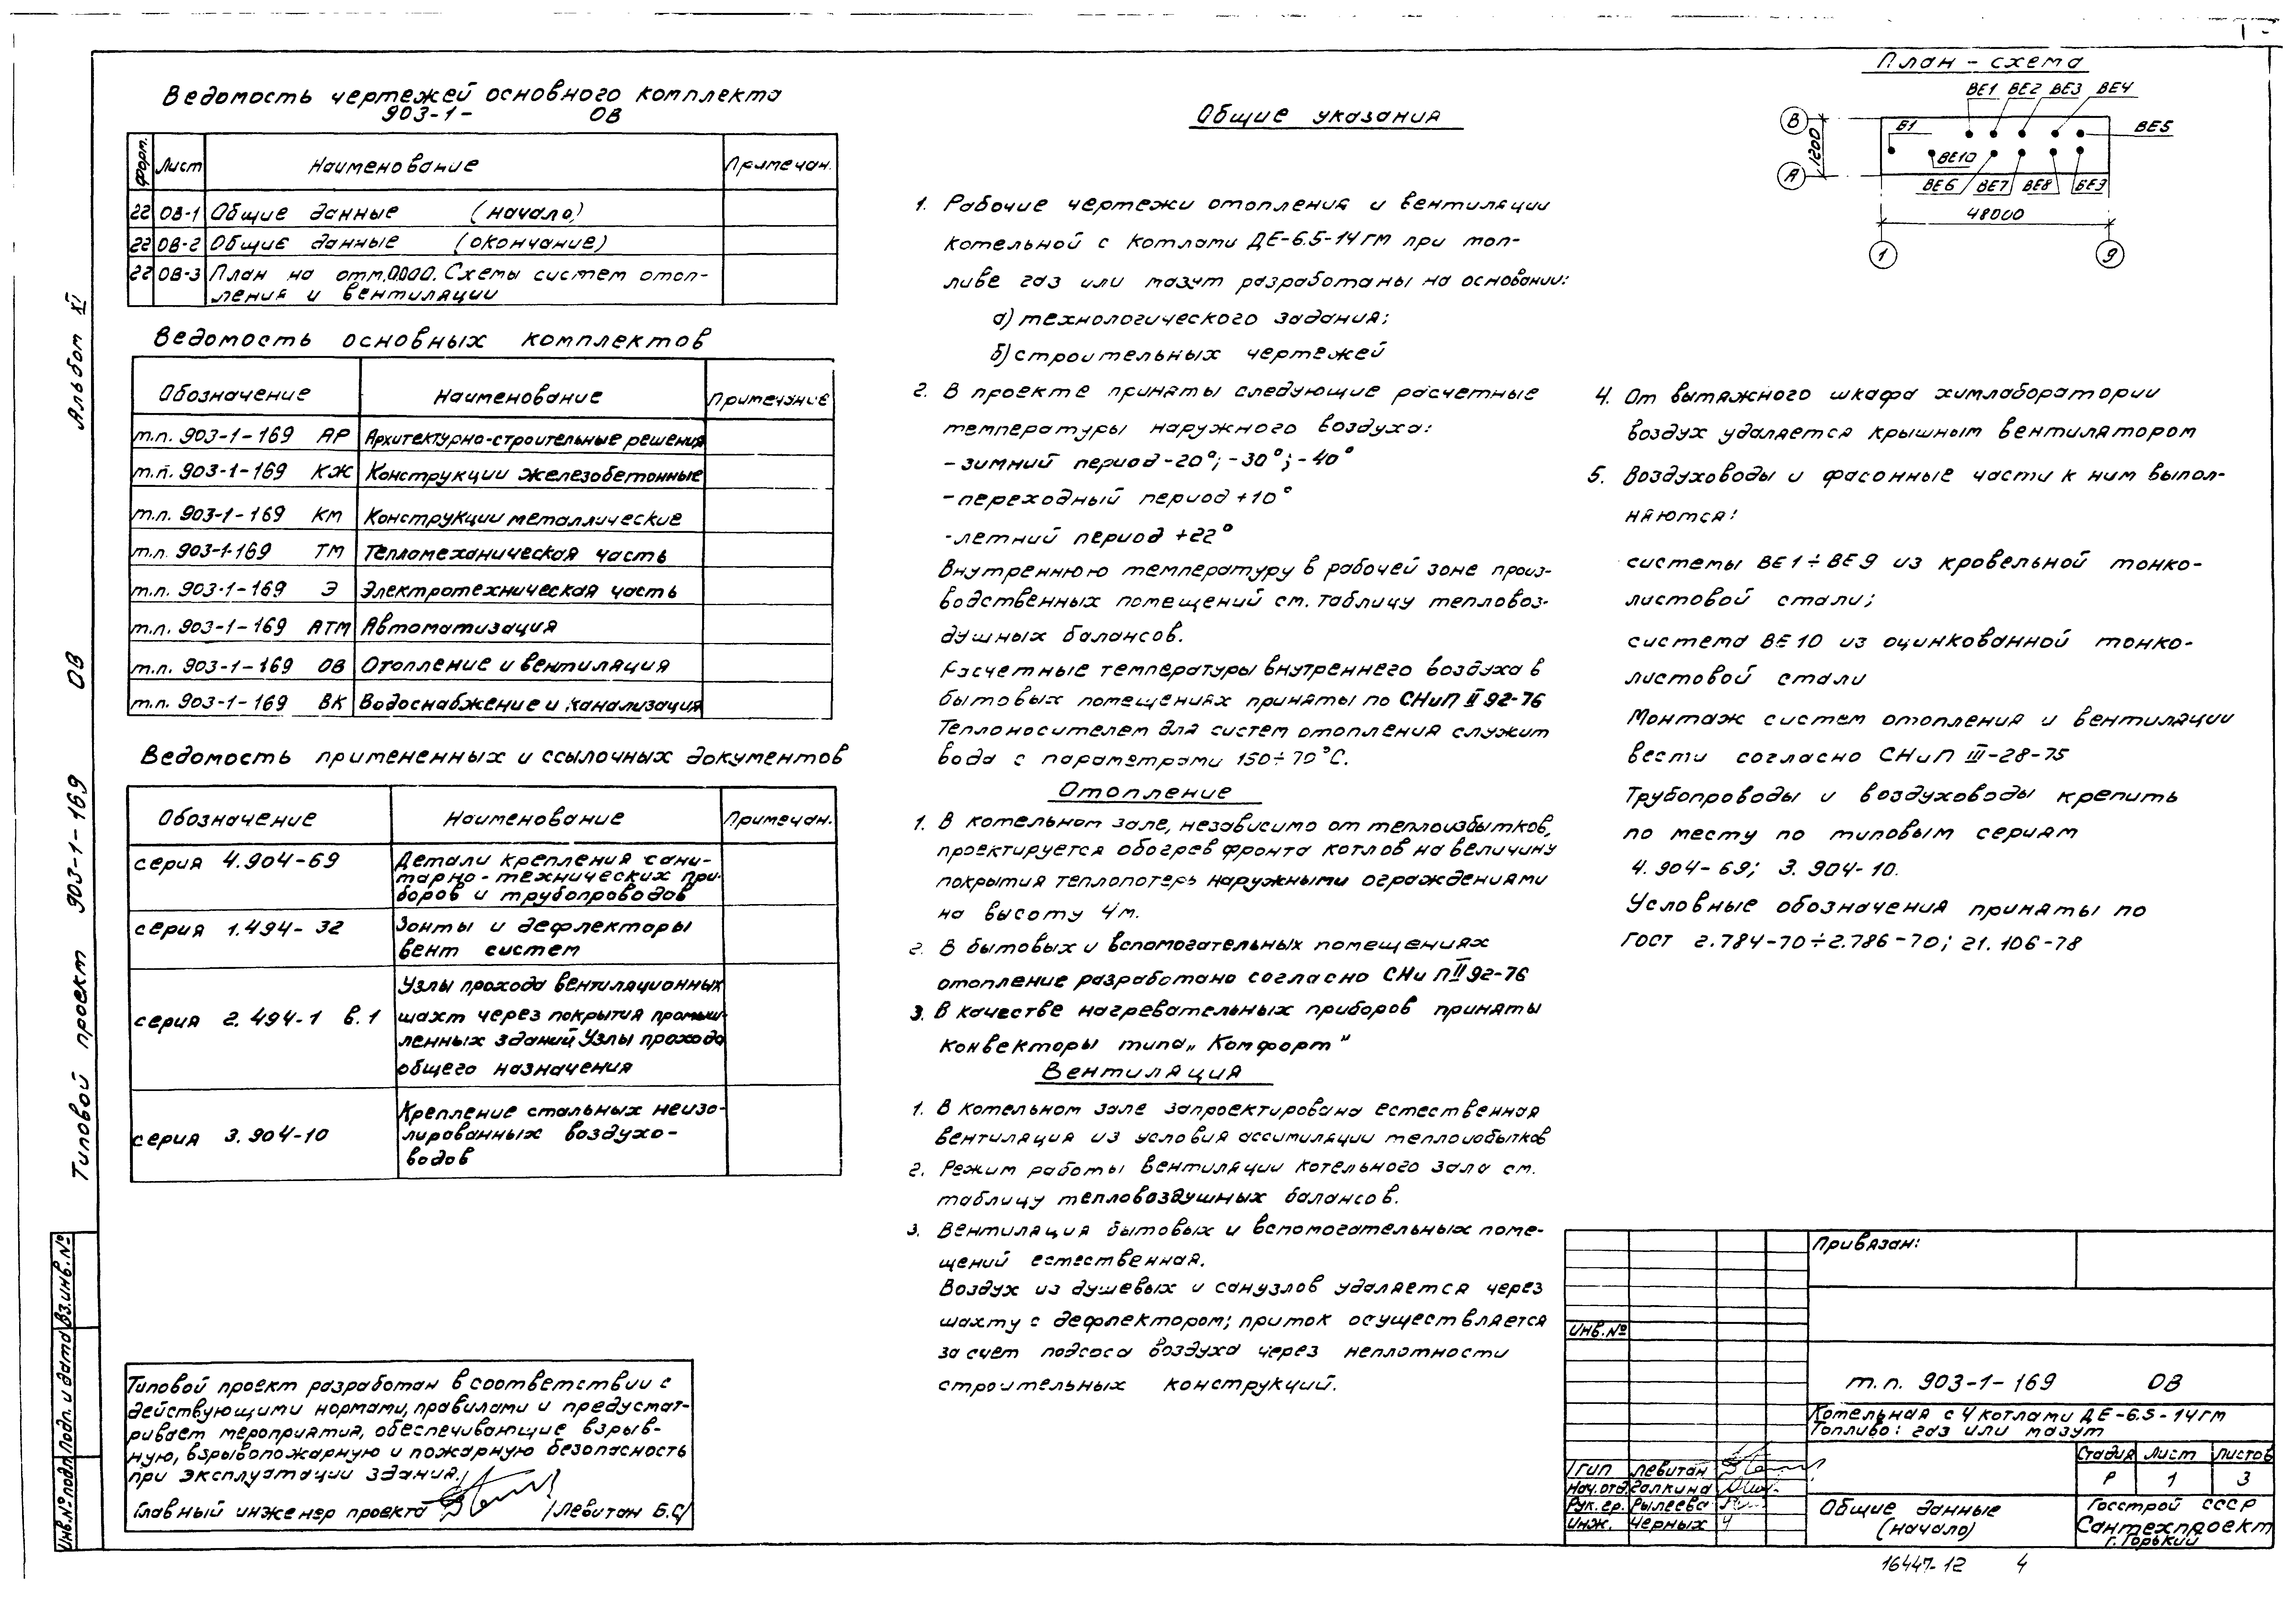 Ведомость чертежей основного комплекта
903-1- ОВ
Форм. Лист Наименование Примечан.
22 ОВ-1 Общие данные (начало)
22 ОВ-2 Общие данные (окончание)
22 ОВ-3 План на отм.0.000. Схемы систем отоп-
ления и вентиляции
Ведомость основных комплектов
Обозначение Наименование Примечание
т.п. 903-1-169 АР Архитектурно-строительные решения
т.п. 903-1-169 КЖ Конструкции железобетонные
т.п. 903-1-169 КМ Конструкции металлические
т.п. 903-1-169 ТМ Тепломеханическая часть
т.п. 903-1-169 Э Электротехническая часть
т.п. 903-1-169 АТМ Автоматизация
т.п. 903-1-169 ОВ Отопление и вентиляция
т.п. 903-1-169 ВК Водоснабжение и канализация
Ведомость примененных и ссылочных документов
Обозначение Наименование Примечан.
серия 4.904-69 Детали крепления сани-
тарно-технических при-
боров и трубопроводов
серия 1.494-32 Зонты и дефлекторы
вент систем
серия 2.494-1 в.1 Узлы прохода вентиляционных
шахт через покрытия промыш-
ленных зданий Узлы прохода
общего назначения
серия 3.904-10 Крепление стальных неизо-
лированных воздухо-
водов
Типовой проект разработан в соответствии с
действующими нормами, правилами и предусмат-
ривает мероприятия, обеспечивающие взрыв-
ную, взрывопожарную и пожарную безопасность
при эксплуатации здания.
Главный инженер проекта /Левитан Б.С/
Типовой проект 903-1-169 ОВ Альбом XI
Инв.№подл. Подп. и дата Вз.инв.№
Общие указания
1. Рабочие чертежи отопления и вентиляции
котельной с котлами ДЕ-6.5-14гм при топ-
ливе газ или мазут разработаны на основании:
а) технологического задания;
б) строительных чертежей
2. В проекте приняты следующие расчетные
температуры наружного воздуха:
-зимний период -20°; -30°; -40°
-переходный период +10°
-летний период +22°
Внутреннюю температуру в рабочей зоне произ-
водственных помещений см. таблицу тепловоз-
душных балансов.
Расчетные температуры внутреннего воздуха в
бытовых помещениях приняты по СНиП II 92-76
Теплоносителем для систем отопления служит
вода с параметрами 150÷70°С.
Отопление
1. В котельном зале, независимо от теплоизбытков,
проектируется обогрев фронта котлов на величину
покрытия теплопотерь наружными ограждениями
на высоту 4м.
2. В бытовых и вспомогательных помещениях
отопление разработано согласно СНиП II 92-76
3. В качестве нагревательных приборов приняты
конвекторы типа „Комфорт"
Вентиляция
1. В котельном зале запроектирована естественная
вентиляция из условия ассимиляции теплоизбытков
2. Режим работы вентиляции котельного зала см.
таблицу тепловоздушных балансов.
3. Вентиляция бытовых и вспомогательных поме-
щений естественная.
Воздух из душевых и санузлов удаляется через
шахту с дефлектором; приток осуществляется
за счет подсоса воздуха через неплотности
строительных конструкций.
План-схема
ВЕ1 ВЕ2 ВЕ3 ВЕ4
В В1 ВЕ5
1200
А ВЕ10
ВЕ6 ВЕ7 ВЕ8 ВЕ9
48000
1 9
4. От вытяжного шкафа химлаборатории
воздух удаляется крышным вентилятором
5. Воздуховоды и фасонные части к ним выпол-
няются:
системы ВЕ1÷ВЕ9 из кровельной тонко-
листовой стали;
система ВЕ10 из оцинкованной тонко-
листовой стали
Монтаж систем отопления и вентиляции
вести согласно СНиП III-28-75
Трубопроводы и воздуховоды крепить
по месту по типовым сериям
4.904-69; 3.904-10.
Условные обозначения приняты по
ГОСТ 2.784-70÷2.786-70; 21.106-78
Привязан:
Инв.№
т.п. 903-1-169 ОВ
Котельная с 4 котлами ДЕ-6.5-14гм
Топливо: газ или мазут
Стадия Лист Листов
Р 1 3
Гип Левитан
Нач.отд. Галкина
Рук.гр. Рылеева
Инж. Черных
Общие данные
(начало)
Госстрой СССР
Сантехпроект
г.Горький
16447-12 4